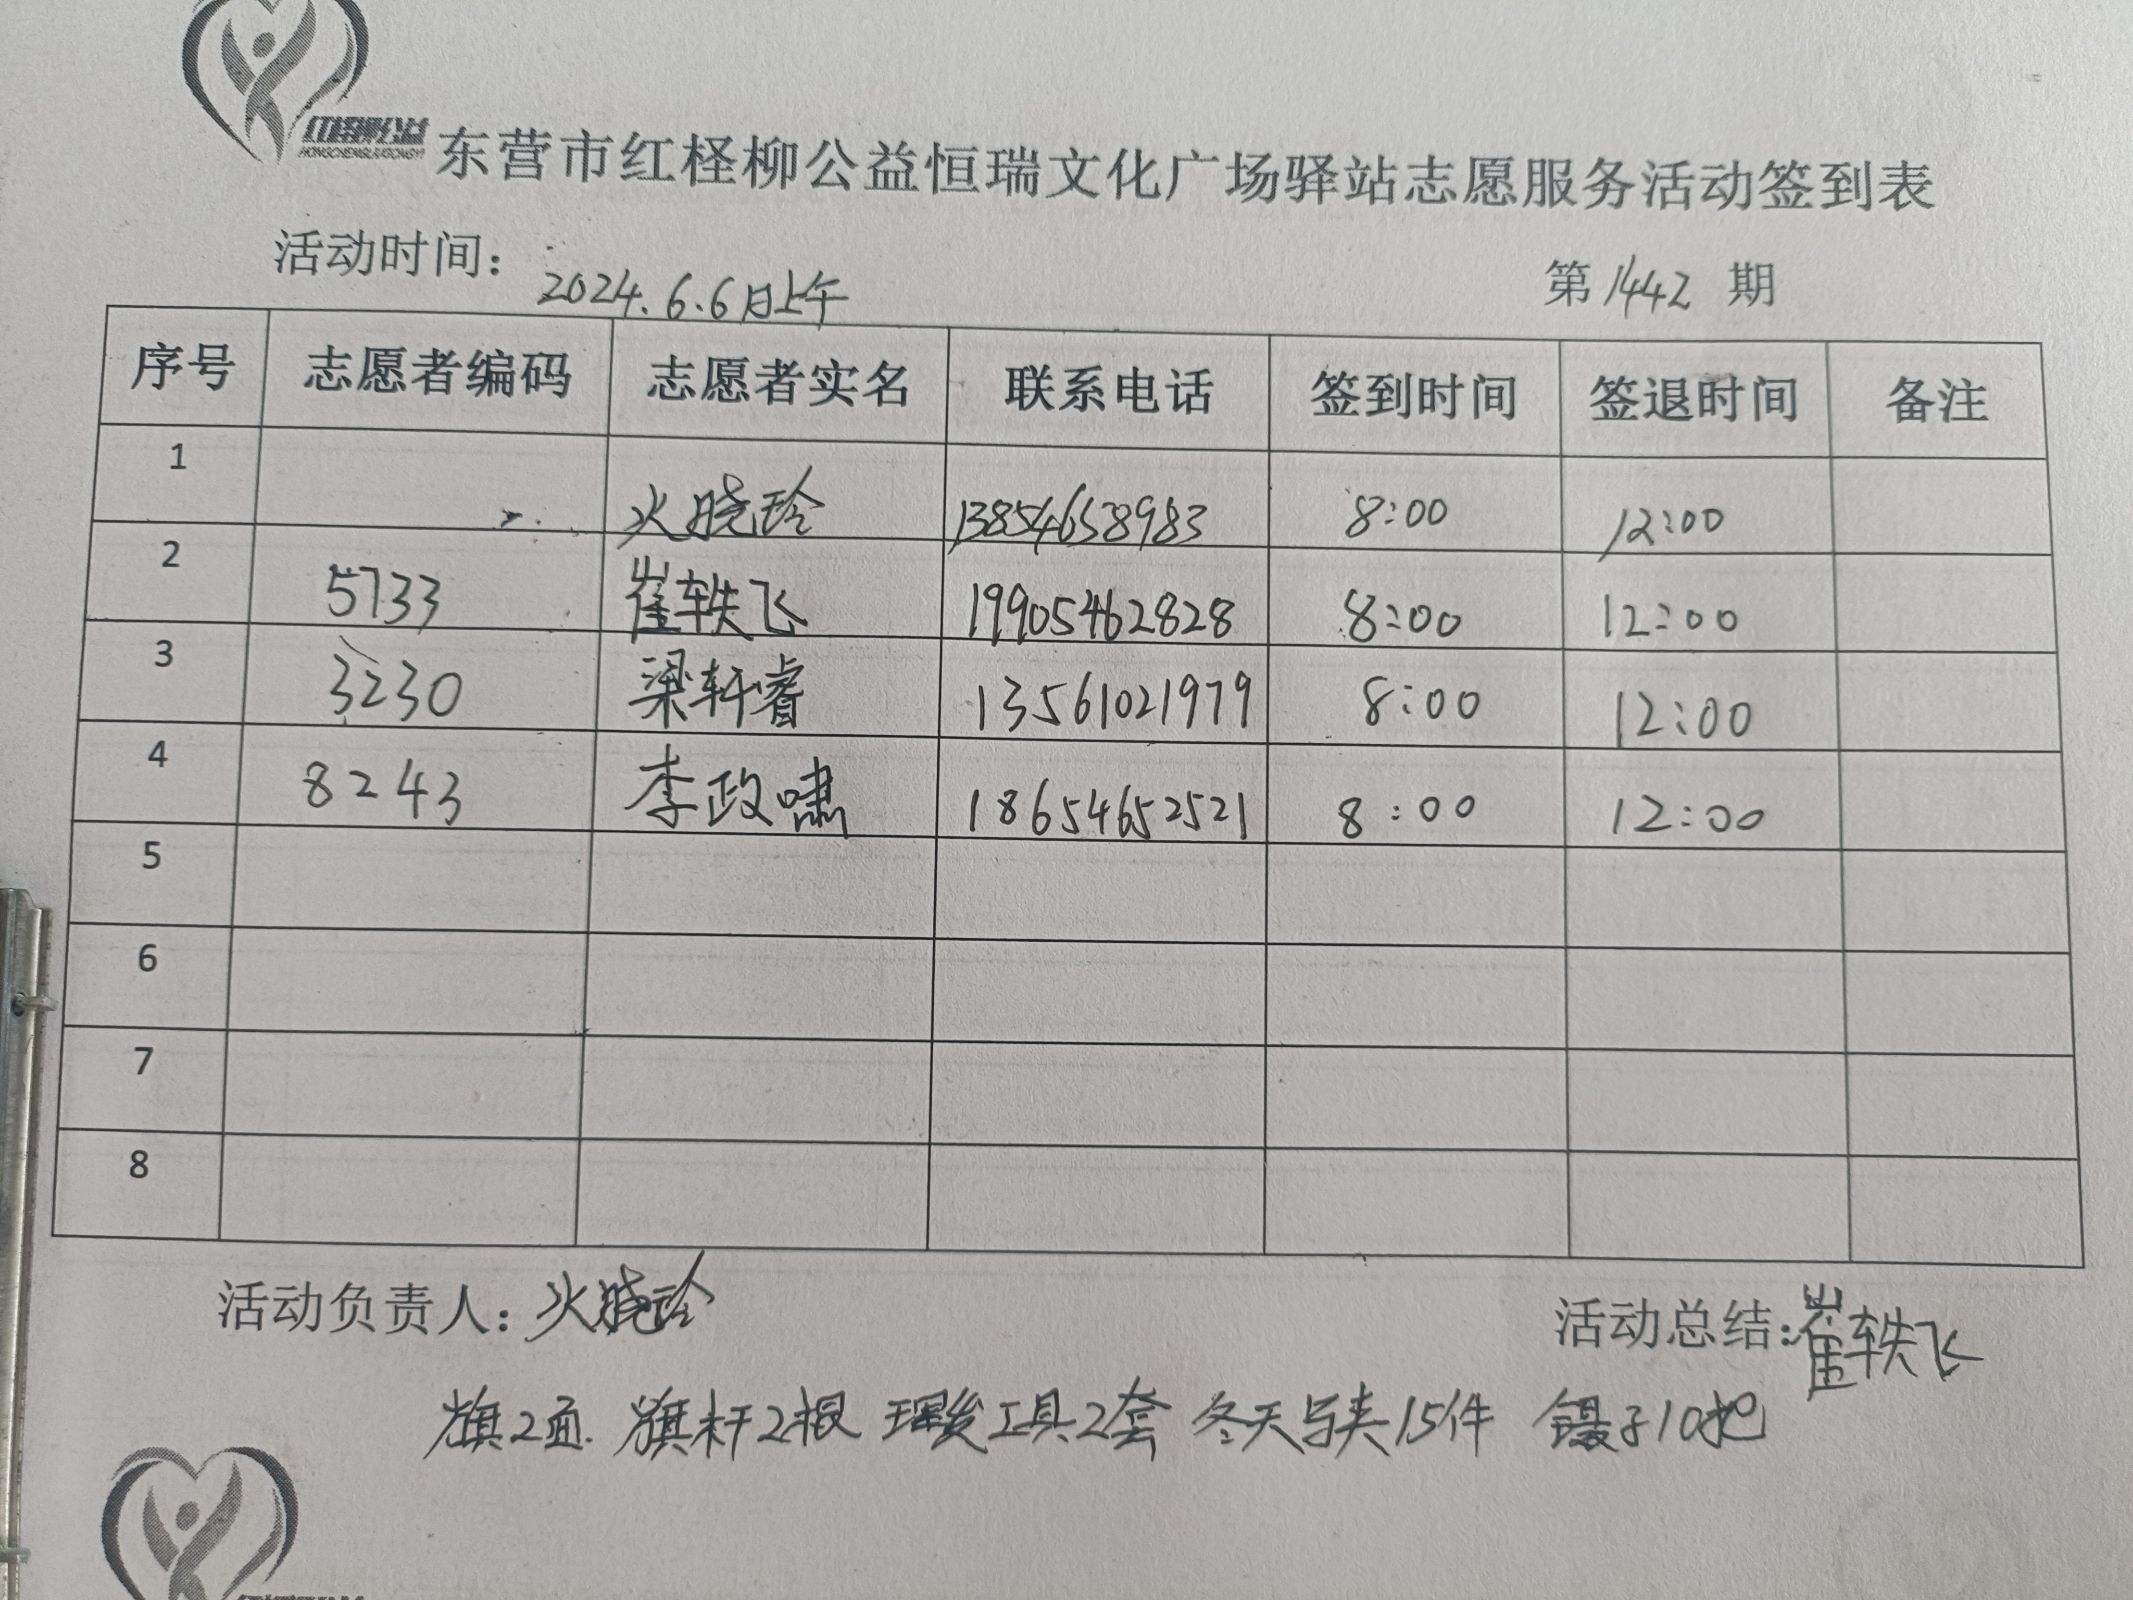 红柽柳公益
HONGCHENGLIUGONGYI
东营市红柽柳公益恒瑞文化广场驿站志愿服务活动签到表
活动时间： 2024.6.6日上午 第1442期
序号 志愿者编码 志愿者实名 联系电话 签到时间 签退时间 备注
1 火晓玲 13854658983 8:00 12:00
2 5733 崔轶飞 19905462828 8:00 12:00
3 3230 梁轩睿 13561021979 8:00 12:00
4 8243 李政啸 18654652521 8:00 12:00
5
6
7
8
活动负责人：火晓玲 活动总结：崔轶飞
旗2面. 旗杆2根 理发工具2套 冬天马夹15件 镊子10把